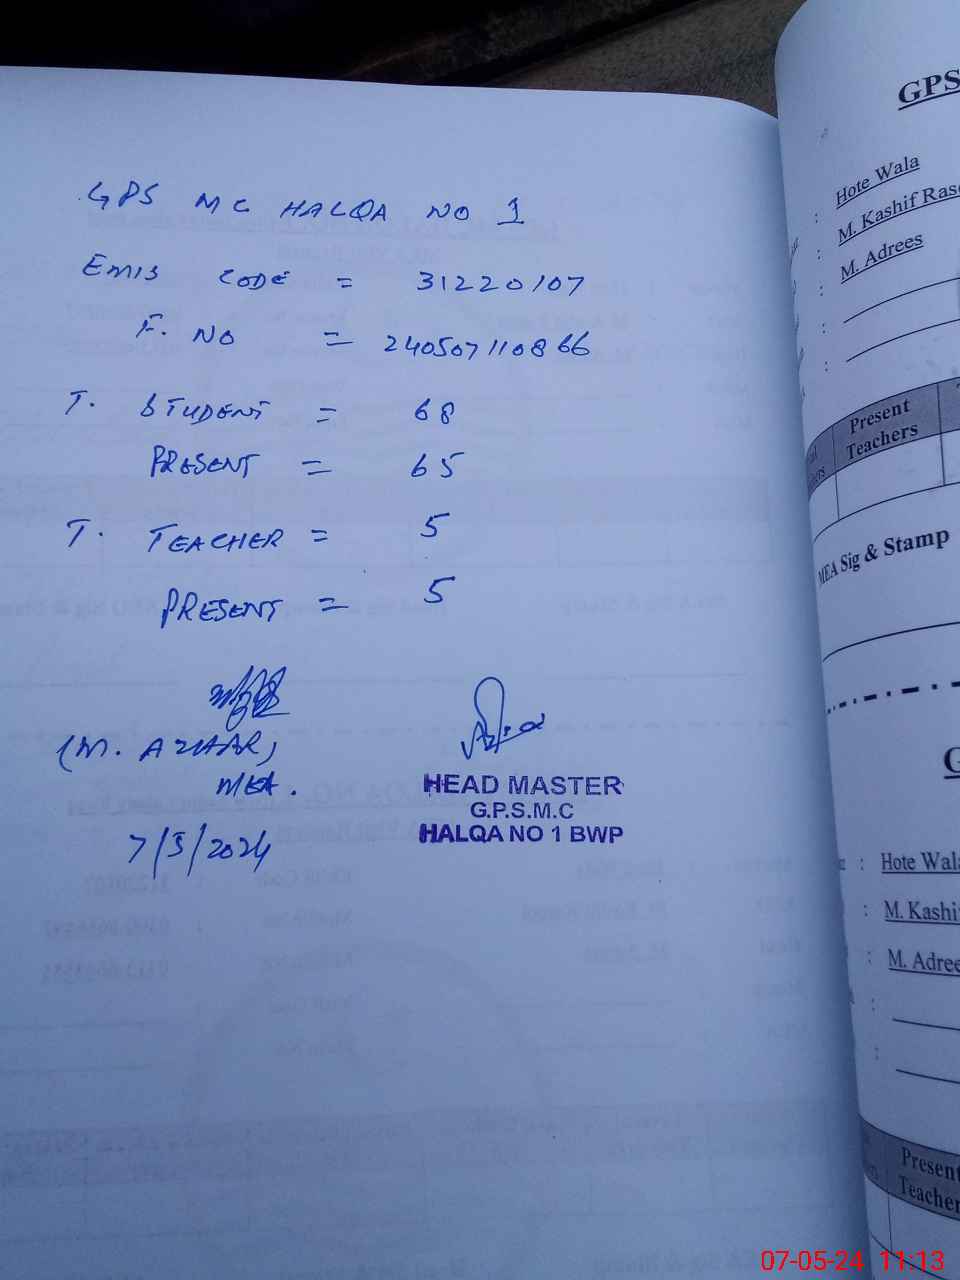 GPS MC HALQA NO 1
EMIS CODE = 31220107
F. NO = 240507110866
T. STUDENT = 68
PRESENT = 65
T. TEACHER = 5
PRESENT = 5
(M. AZHAR)
MEA.
7/5/2024
HEAD MASTER
G.P.S.M.C
HALQA NO 1 BWP
GPS
: Hote Wala
: M. Kashif Ras
: M. Adrees
:
Present
Teachers
MEA Sig & Stamp
G
: Hote Wala
: M. Kashi
: M. Adree
:
:
Present
Teacher
07-05-24 11:13